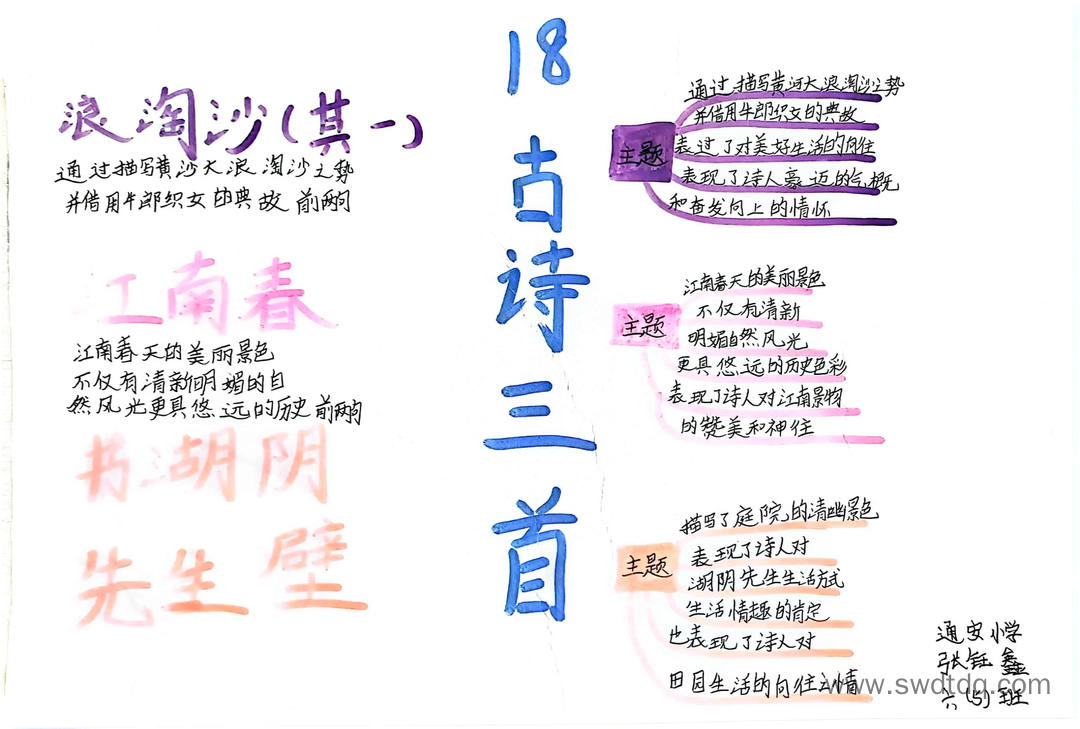 18
古
诗
三
首
浪淘沙(其一)
通过描写黄沙大浪淘沙之势
并借用牛郎织女的典故 前两
江南春
江南春天的美丽景色
不仅有清新明媚的自
然风光更具悠远的历史 前两
书湖阴
先生壁
主题
通过描写黄河大浪淘沙之势
并借用牛郎织女的典故
表过了对美好生活的向住
表现了诗人豪迈的气概
和奋发向上的情怀
主题
江南春天的美丽景色
不仅有清新
明媚自然风光
更具悠远的历史色彩
表现了诗人对江南景物
的赞美和神住
主题
描写了庭院的清幽景色
表现了诗人对
湖阴先生生活方式
生活情趣的肯定
也表现了诗人对
田园生活的向住之情
通安小学
张钰鑫
六(5)班
www.swdtdq.com